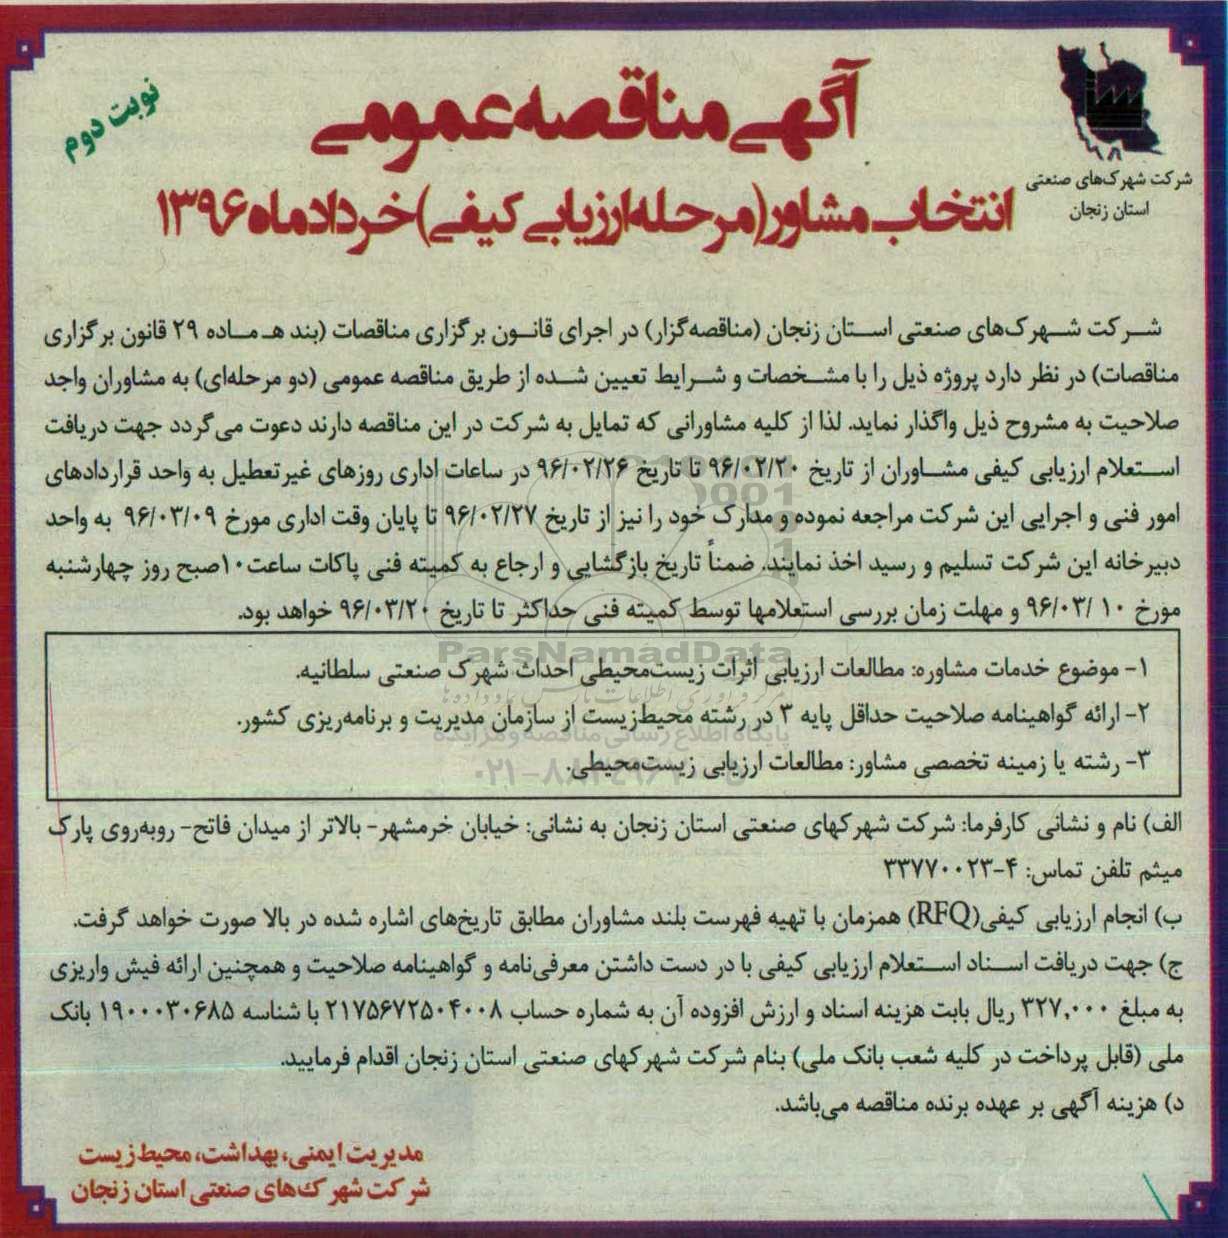 نوبت دوم
آگهی مناقصه عمومی
انتخاب مشاور(مرحله ارزیابی کیفی)خرداد ماه ۱۳۹۶
شرکت شهرک‌های صنعتی
استان زنجان
شرکت شهرک‌های صنعتی استان زنجان (مناقصه‌گزار) در اجرای قانون برگزاری مناقصات (بند هـ ماده ۲۹ قانون برگزاری
مناقصات) در نظر دارد پروژه ذیل را با مشخصات و شرایط تعیین شده از طریق مناقصه عمومی (دو مرحله‌ای) به مشاوران واجد
صلاحیت به مشروح ذیل واگذار نماید. لذا از کلیه مشاورانی که تمایل به شرکت در این مناقصه دارند دعوت می‌گردد جهت دریافت
استعلام ارزیابی کیفی مشاوران از تاریخ ۹۶/۰۲/۲۰ تا تاریخ ۹۶/۰۲/۲۶ در ساعات اداری روزهای غیرتعطیل به واحد قراردادهای
امور فنی و اجرایی این شرکت مراجعه نموده و مدارک خود را نیز از تاریخ ۹۶/۰۲/۲۷ تا پایان وقت اداری مورخ ۹۶/۰۳/۰۹ به واحد
دبیرخانه این شرکت تسلیم و رسید اخذ نمایند. ضمناً تاریخ بازگشایی و ارجاع به کمیته فنی پاکات ساعت۱۰صبح روز چهارشنبه
مورخ ۹۶/۰۳/۱۰ و مهلت زمان بررسی استعلامها توسط کمیته فنی حداکثر تا تاریخ ۹۶/۰۳/۲۰ خواهد بود.
۱- موضوع خدمات مشاوره: مطالعات ارزیابی اثرات زیست‌محیطی احداث شهرک صنعتی سلطانیه.
۲- ارائه گواهینامه صلاحیت حداقل پایه ۳ در رشته محیط‌زیست از سازمان مدیریت و برنامه‌ریزی کشور.
۳- رشته یا زمینه تخصصی مشاور: مطالعات ارزیابی زیست‌محیطی.
الف) نام و نشانی کارفرما: شرکت شهرکهای صنعتی استان زنجان به نشانی: خیابان خرمشهر- بالاتر از میدان فاتح- روبه‌روی پارک
میثم تلفن تماس: ۴-۳۳۷۷۰۰۲۳
ب) انجام ارزیابی کیفی(RFQ) همزمان با تهیه فهرست بلند مشاوران مطابق تاریخ‌های اشاره شده در بالا صورت خواهد گرفت.
ج) جهت دریافت اسناد استعلام ارزیابی کیفی با در دست داشتن معرفی‌نامه و گواهینامه صلاحیت و همچنین ارائه فیش واریزی
به مبلغ ۳۲۷,۰۰۰ ریال بابت هزینه اسناد و ارزش افزوده آن به شماره حساب ۲۱۷۵۶۷۲۵۰۴۰۰۸ با شناسه ۱۹۰۰۰۳۰۶۸۵ بانک
ملی (قابل پرداخت در کلیه شعب بانک ملی) بنام شرکت شهرکهای صنعتی استان زنجان اقدام فرمایید.
د) هزینه آگهی بر عهده برنده مناقصه می‌باشد.
مدیریت ایمنی، بهداشت، محیط زیست
شرکت شهرک‌های صنعتی استان زنجان
ParsNamadData
پایگاه اطلاع رسانی مناقصه و مزایده